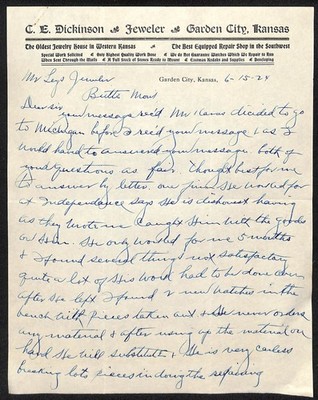 C. E. Dickinson — Jeweler — Garden City, Kansas
The Oldest Jewelry House in Western Kansas The Best Equipped Repair Shop in the Southwest
Special Work Solicited and Highest Quality Work Done We do Not Guarantee Watches Which We Repair to Run
When Sent Through the Mails A Full Stock of Stones Ready to Mount Eastman Kodaks and Supplies Developing
Garden City, Kansas, 6-15-24
Mr Leys Jeweler
Butte Mont
Dear sir
your message rec'd. Mr decided to go
to Michigan before I rec'd your message & as I
would have to answered your message both of
your questions as fair. Thought best for me
to answer by letter. one firm He worked for
at Independence says He is dishonest having
as they wrote me caught Him with the goods
on Him. He only worked for me 5 months
& I found several things not satisfactory
quite a lot of His work had to be done over
after He left I found 2 new watches in the
bench with pieces taken out & He never orders
any material & after using up the material on
hand He will substitute & He is very careless
breaking lots pieces in doing the repairing